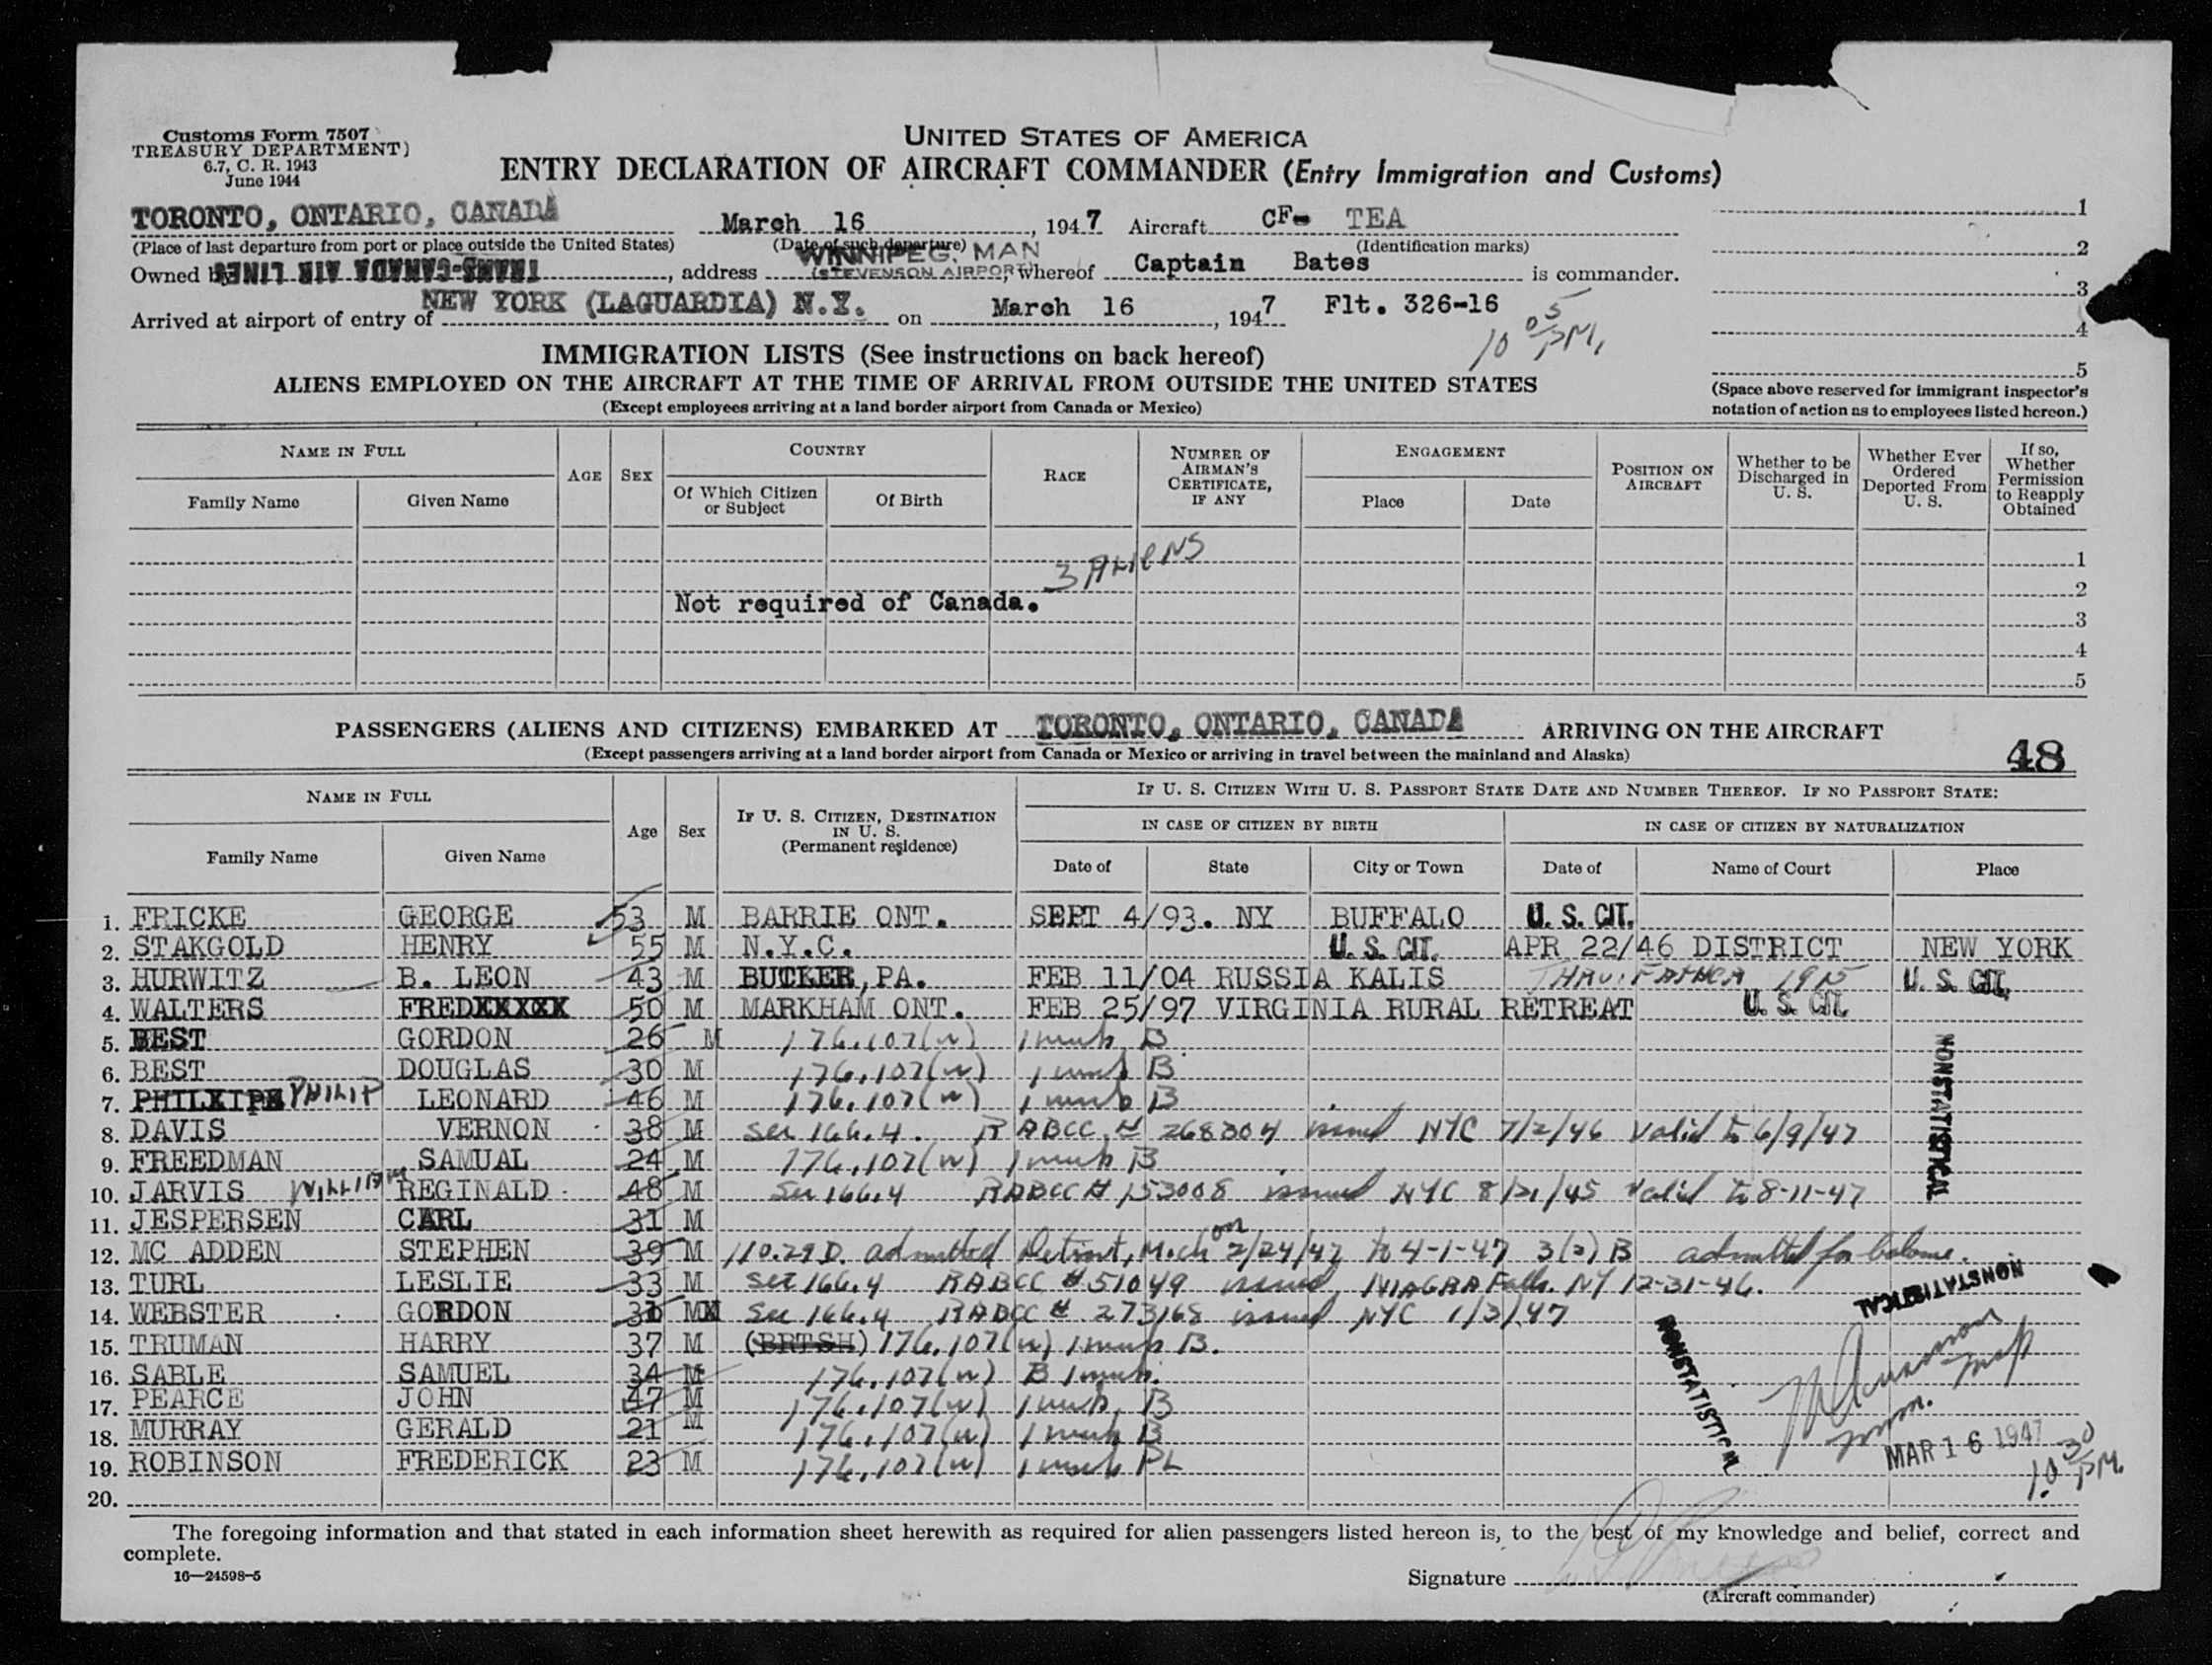 Customs Form 7507
TREASURY DEPARTMENT)
6.7, C. R. 1943
June 1944
UNITED STATES OF AMERICA
ENTRY DECLARATION OF AIRCRAFT COMMANDER (Entry Immigration and Customs)
TORONTO, ONTARIO, CANADA March 16, 1947 Aircraft CF- TEA
(Place of last departure from port or place outside the United States) (Date of such departure) (Identification marks)
WINNIPEG, MAN
Owned by TRANS-CANADA AIR LINES, address (STEVENSON AIRPORT), whereof Captain Bates is commander.
Arrived at airport of entry of NEW YORK (LAGUARDIA) N.Y. on March 16, 1947 Flt. 326-16
10 05 PM.
1
2
3
4
5
(Space above reserved for immigrant inspector's
notation of action as to employees listed hereon.)
IMMIGRATION LISTS (See instructions on back hereof)
ALIENS EMPLOYED ON THE AIRCRAFT AT THE TIME OF ARRIVAL FROM OUTSIDE THE UNITED STATES
(Except employees arriving at a land border airport from Canada or Mexico)
NAME IN FULL
Family Name Given Name
AGE SEX
COUNTRY
Of Which Citizen or Subject Of Birth
RACE
NUMBER OF AIRMAN'S CERTIFICATE, IF ANY
ENGAGEMENT
Place Date
POSITION ON AIRCRAFT
Whether to be Discharged in U. S.
Whether Ever Ordered Deported From U. S.
If so, Whether Permission to Reapply Obtained
1
3 ALIENS
2
Not required of Canada.
3
4
5
PASSENGERS (ALIENS AND CITIZENS) EMBARKED AT TORONTO, ONTARIO, CANADA ARRIVING ON THE AIRCRAFT
(Except passengers arriving at a land border airport from Canada or Mexico or arriving in travel between the mainland and Alaska)
48
NAME IN FULL
Family Name Given Name
Age Sex
IF U. S. CITIZEN, DESTINATION IN U. S. (Permanent residence)
IF U. S. CITIZEN WITH U. S. PASSPORT STATE DATE AND NUMBER THEREOF. IF NO PASSPORT STATE:
IN CASE OF CITIZEN BY BIRTH IN CASE OF CITIZEN BY NATURALIZATION
Date of State City or Town Date of Name of Court Place
1. FRICKE GEORGE 53 M BARRIE ONT. SEPT 4/93. NY BUFFALO U. S. CIT.
2. STAKGOLD HENRY 55 M N.Y.C. U. S. CIT. APR 22/46 DISTRICT NEW YORK
3. HURWITZ B. LEON 43 M BUTLER, PA. FEB 11/04 RUSSIA KALIS THRU FATHER 1915 U. S. CIT.
4. WALTERS FREDXXXXX 50 M MARKHAM ONT. FEB 25/97 VIRGINIA RURAL RETREAT U. S. CIT.
5. BEST GORDON 26 M 176.107(w) B
6. BEST DOUGLAS 30 M 176.107(w) B
7. PHILIP LEONARD 46 M 176.107(w) B
8. DAVIS VERNON 38 M Sec 166.4. RABCC # 268304 issued NYC 7/2/46 Valid to 6/9/47
9. FREEDMAN SAMUAL 24 M 176.107(w) B
10. JARVIS WILLIAM REGINALD 48 M Sec 166.4 RABCC # 153008 issued NYC 8/21/45 Valid to 8-11-47
11. JESPERSEN CARL 31 M
12. MC ADDEN STEPHEN 39 M 110.29 D. admitted Detroit, Mich on 2/24/47 to 4-1-47 3(2) B admitted for balance.
13. TURL LESLIE 33 M Sec 166.4 RABCC # 51049 issued NIAGRA Falls. NY 12-31-46.
14. WEBSTER GORDON 31 M Sec 166.4 RABCC # 273168 issued NYC 1/3/47
15. TRUMAN HARRY 37 M (BRTSH) 176.107(w) B.
16. SABLE SAMUEL 34 M 176.107(w) B
17. PEARCE JOHN 47 M 176.107(w) B
18. MURRAY GERALD 21 M 176.107(w) B
19. ROBINSON FREDERICK 23 M 176.107(w) PL
20.
NONSTATISTICAL
NONSTATISTICAL
NONSTATISTICAL
MAR 16 1947
10 30 PM.
The foregoing information and that stated in each information sheet herewith as required for alien passengers listed hereon is, to the best of my knowledge and belief, correct and
complete.
16—24598-5
Signature
(Aircraft commander)